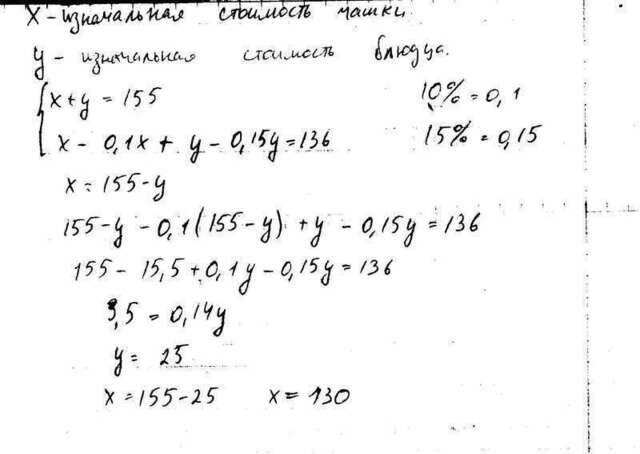 x - изначальная стоимость чашки.
y - изначальная стоимость блюдца.
x+y=155 10%=0,1
x - 0,1x + y - 0,15y=136 15%=0,15
x = 155-y
155-y - 0,1(155-y) + y - 0,15y=136
155 - 15,5 + 0,1y - 0,15y=136
3,5 = 0,14y
y = 25
x = 155-25 x = 130